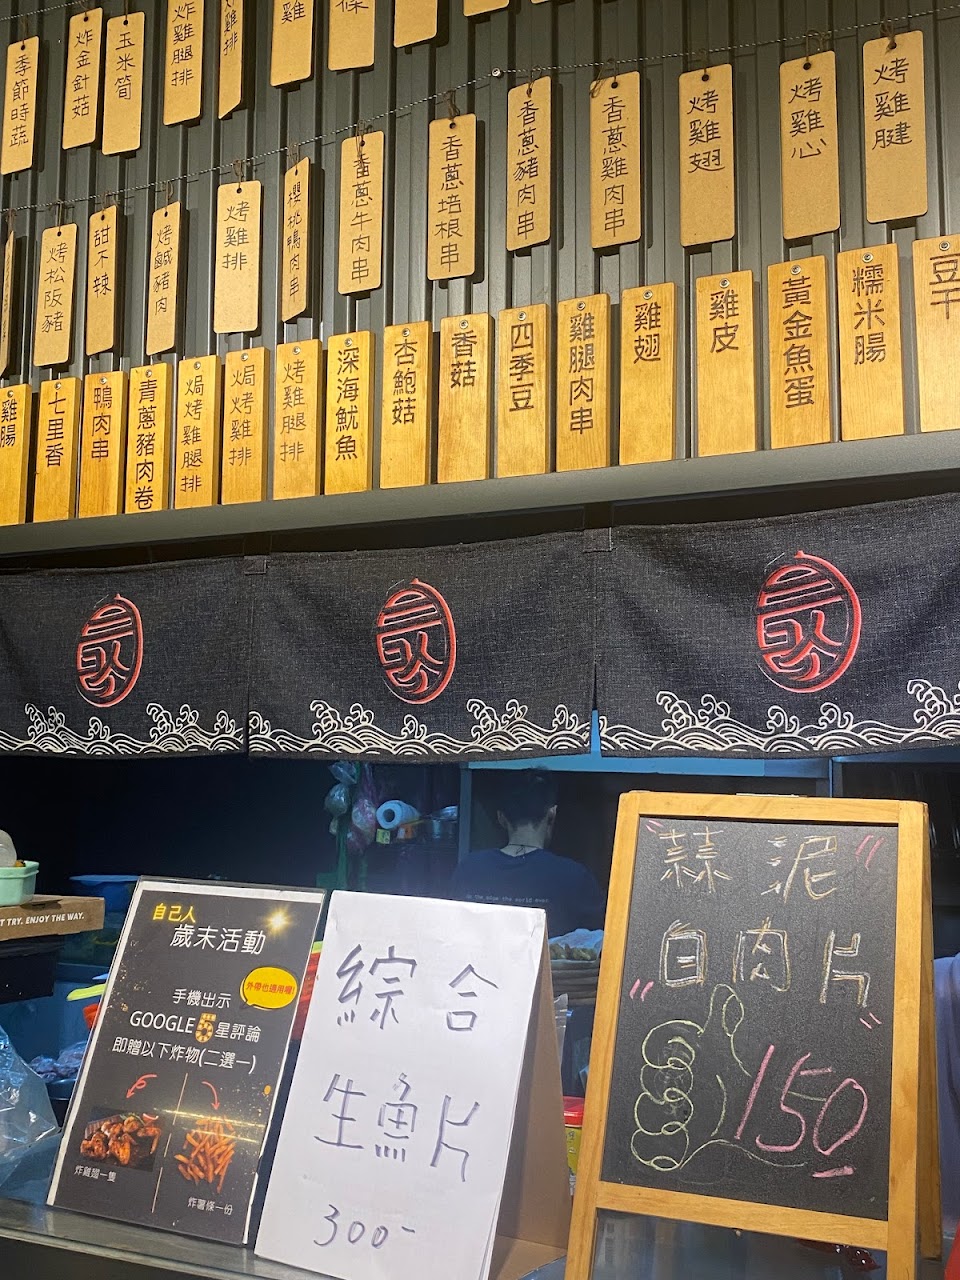 季節時蔬
炸金針菇
玉米筍
炸雞腿排
雞
烤松阪豬
甜不辣
烤鹹豬肉
烤雞排
櫻桃鴨肉串
香蔥牛肉串
香蔥培根串
香蔥豬肉串
香蔥雞肉串
烤雞翅
烤雞心
烤雞腱
雞腸
七里香
鴨肉串
青蔥豬肉卷
焗烤雞腿排
焗烤雞排
烤雞腿排
深海魷魚
杏鮑菇
香菇
四季豆
雞腿肉串
雞翅
雞皮
黃金魚蛋
糯米腸
豆干
T TRY. ENJOY THE WAY.
自己人
歲末活動
外帶也適用喔!
手機出示
GOOGLE 5星評論
即贈以下炸物(二選一)
炸雞翅一隻
炸薯條一份
綜合
生魚片
300-
"蒜泥"
"白肉片"
150